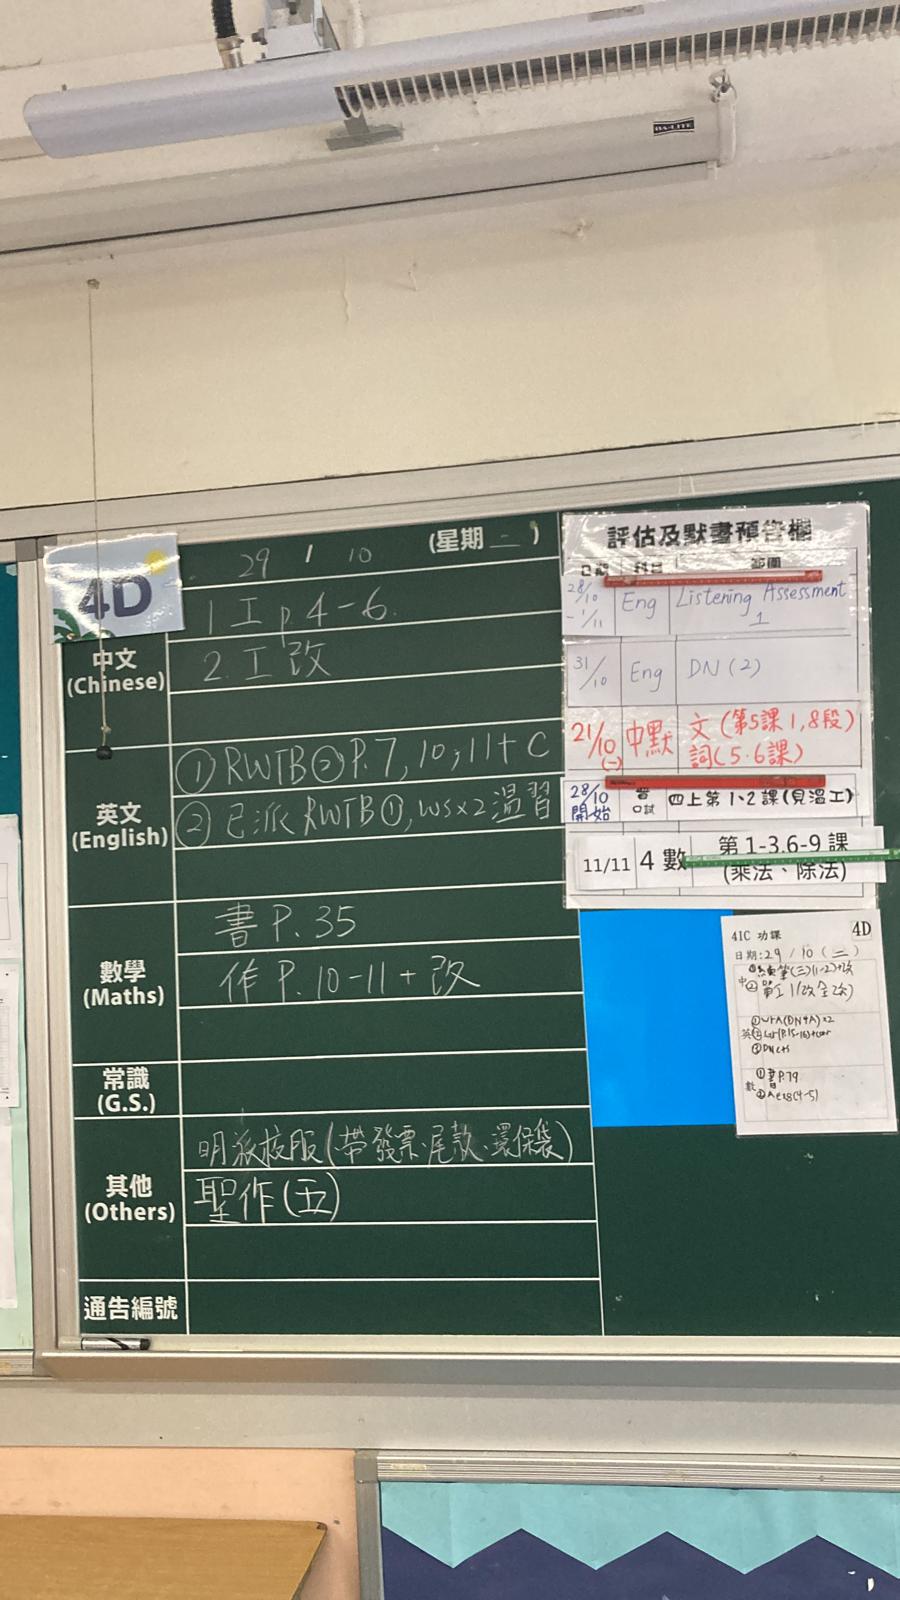 DA-LITE
4D
29 / 10 (星期二)
中文
(Chinese)
1 工 p.4-6.
2. 工改
英文
(English)
① RWTB② P.7, 10, 11 + C
② 已派 RWTB①, WS×2 溫習
數學
(Maths)
書 P. 35
作 P. 10-11 + 改
常識
(G.S.)
其他
(Others)
明派校服(帶發票、尾款、環保袋)
聖作(五)
通告編號
評估及默書預告欄
日期 科目 範圍
28/10 - 1/11 Eng Listening Assessment 1
31/10 Eng DN (2)
21/10 (一) 中默 文(第5課1,8段)
詞(5.6課)
28/10 開始 口試 四上第1、2課(見溫工)
11/11 4數 第1-3.6-9課
(乘法、除法)
4IC 功課 4D
日期:29/10(二)
中
英
② (P.15-16)
數 ① 書P.79